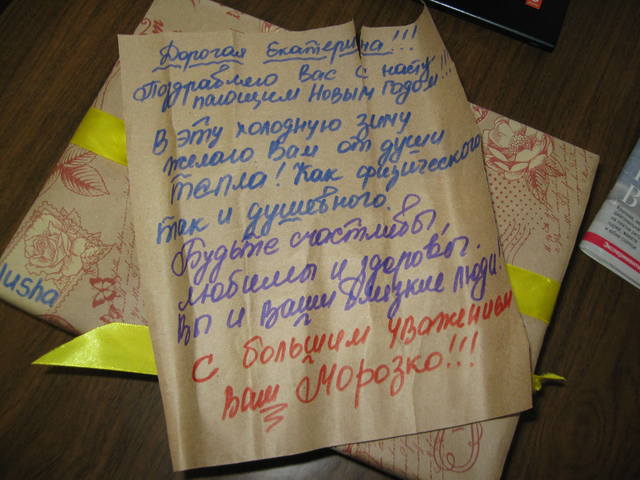 Дорогая Екатерина!!!
Поздравляю Вас с насту
пающим Новым годом!!!
В эту холодную зиму
желаю Вам от души
тепла! Как физического
так и душовного.
Будьте счастливы,
любимы и здоровы.
Вы и Ваши близкие люди!
С большим уважением
Ваш Морозко!!!
lusha